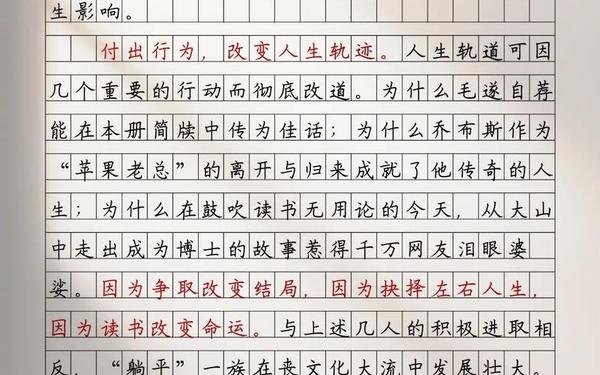 生影响。
付出行为，改变人生轨迹。人生轨道可因
几个重要的行动而彻底改道。为什么毛遂自荐
能在本册简牍中传为佳话；为什么乔布斯作为
“苹果老总”的离开与归来成就了他传奇的人
生；为什么在鼓吹读书无用论的今天，从大山
中走出成为博士的故事惹得千万网友泪眼婆
娑。因为争取改变结局，因为抉择左右人生，
因为读书改变命运。与上述几人的积极进取相
反，“躺平”一族在丧文化大流中发展壮大。